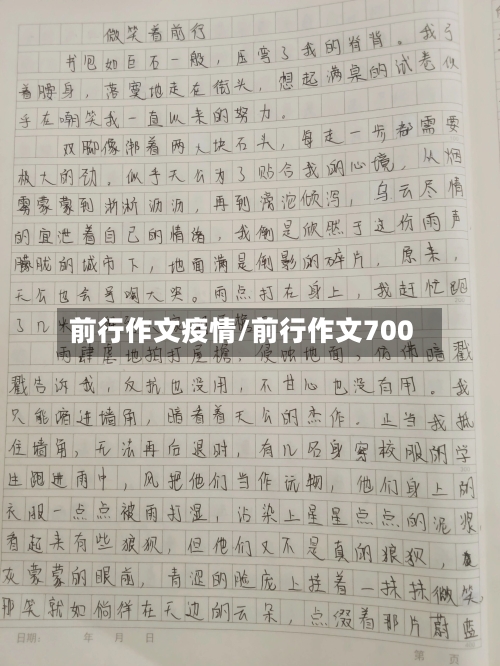 微笑着前行
书包如巨石一般，压弯了我的脊背。我弓
着腰身，落寞地走在街头，想起满桌的试卷似
乎在嘲笑我一直以来的努力。
双脚像绑着两大块石头，每走一步都需要
极大的劲。似乎天公为了贴合我的心境，从烟
雾蒙蒙到淅淅沥沥，再到滂沱倾泻，乌云尽情
的宣泄着自己的情绪，我倒是欣然于这份雨声
朦胧的城市下，地面满是倒影的碎片，原来，
天公也会号啕大哭。雨点打在身上，我赶忙跑
了几米
前行作文疫情/前行作文700
雨肆虐地拍打屋檐，侵蚀地面，仿佛暗戳
戳告诉我，反抗也没用，不甘心也没有用。我
只能缩进墙角，暗看着天公的杰作。正当我抵
住墙角，无法再后退时，有几名身穿校服的学
生跑进雨中，风把他们当作玩物，他们身上的
衣服一点点被雨打湿，沾染上星星点点的泥浆
看起来有些狼狈，但他们又不是真的狼狈，
灰蒙蒙的眼前，青涩的脸庞上挂着一抹抹微笑
那笑就如倘徉在天边的云朵，点缀着那片蔚蓝
日期： 年 月 日
第 页